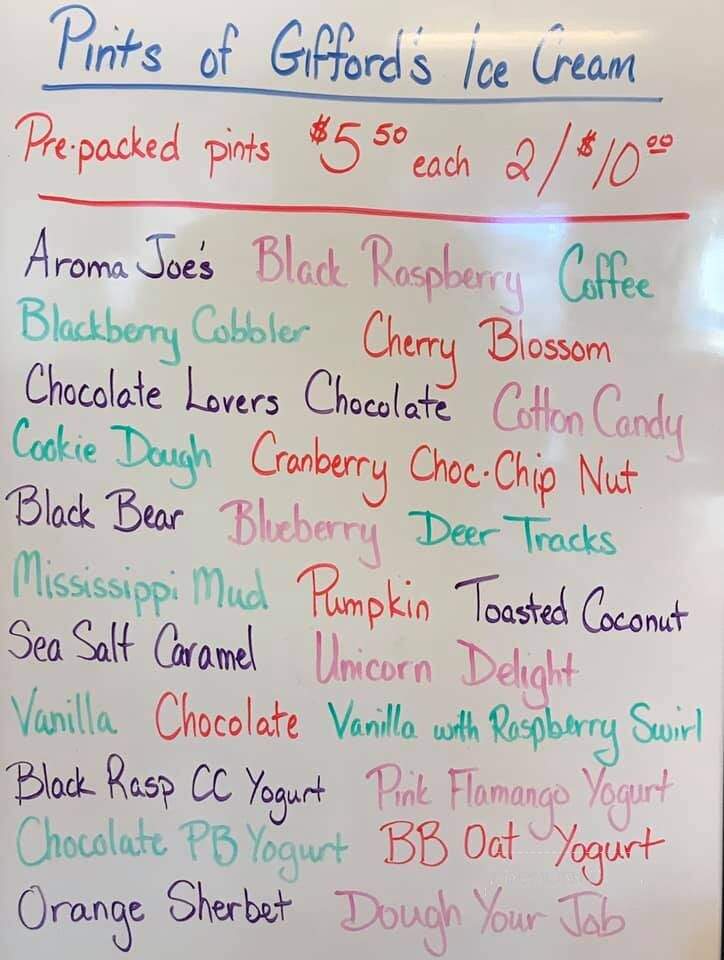 Pints of Gifford's Ice Cream
Pre-packed pints $5.50 each 2/$10.00
Aroma Joe's Black Raspberry Coffee
Blackberry Cobbler Cherry Blossom
Chocolate Lovers Chocolate Cotton Candy
Cookie Dough Cranberry Choc. Chip Nut
Black Bear Blueberry Deer Tracks
Mississippi Mud Pumpkin Toasted Coconut
Sea Salt Caramel Unicorn Delight
Vanilla Chocolate Vanilla with Raspberry Swirl
Black Rasp CC Yogurt Pink Flamango Yogurt
Chocolate PB Yogurt BB Oat Yogurt
Orange Sherbet Dough Your Job